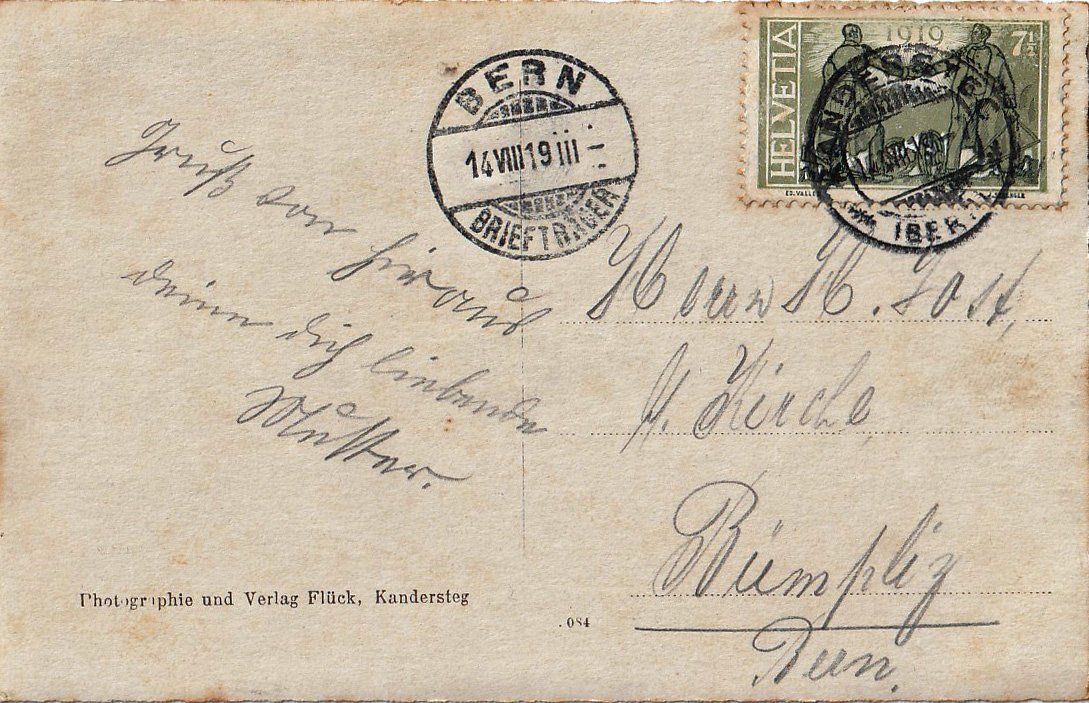 HELVETIA
1919
7½
BERN
14 VIII 19 III –
BRIEFTRÄGER
KANDERSTEG
(BERN)
Gruß von
hier aus
deine dich liebende
Mutter.
Herrn H. Jost,
Kirche
Bümpliz
Bern.
Photographie und Verlag Flück, Kandersteg
084